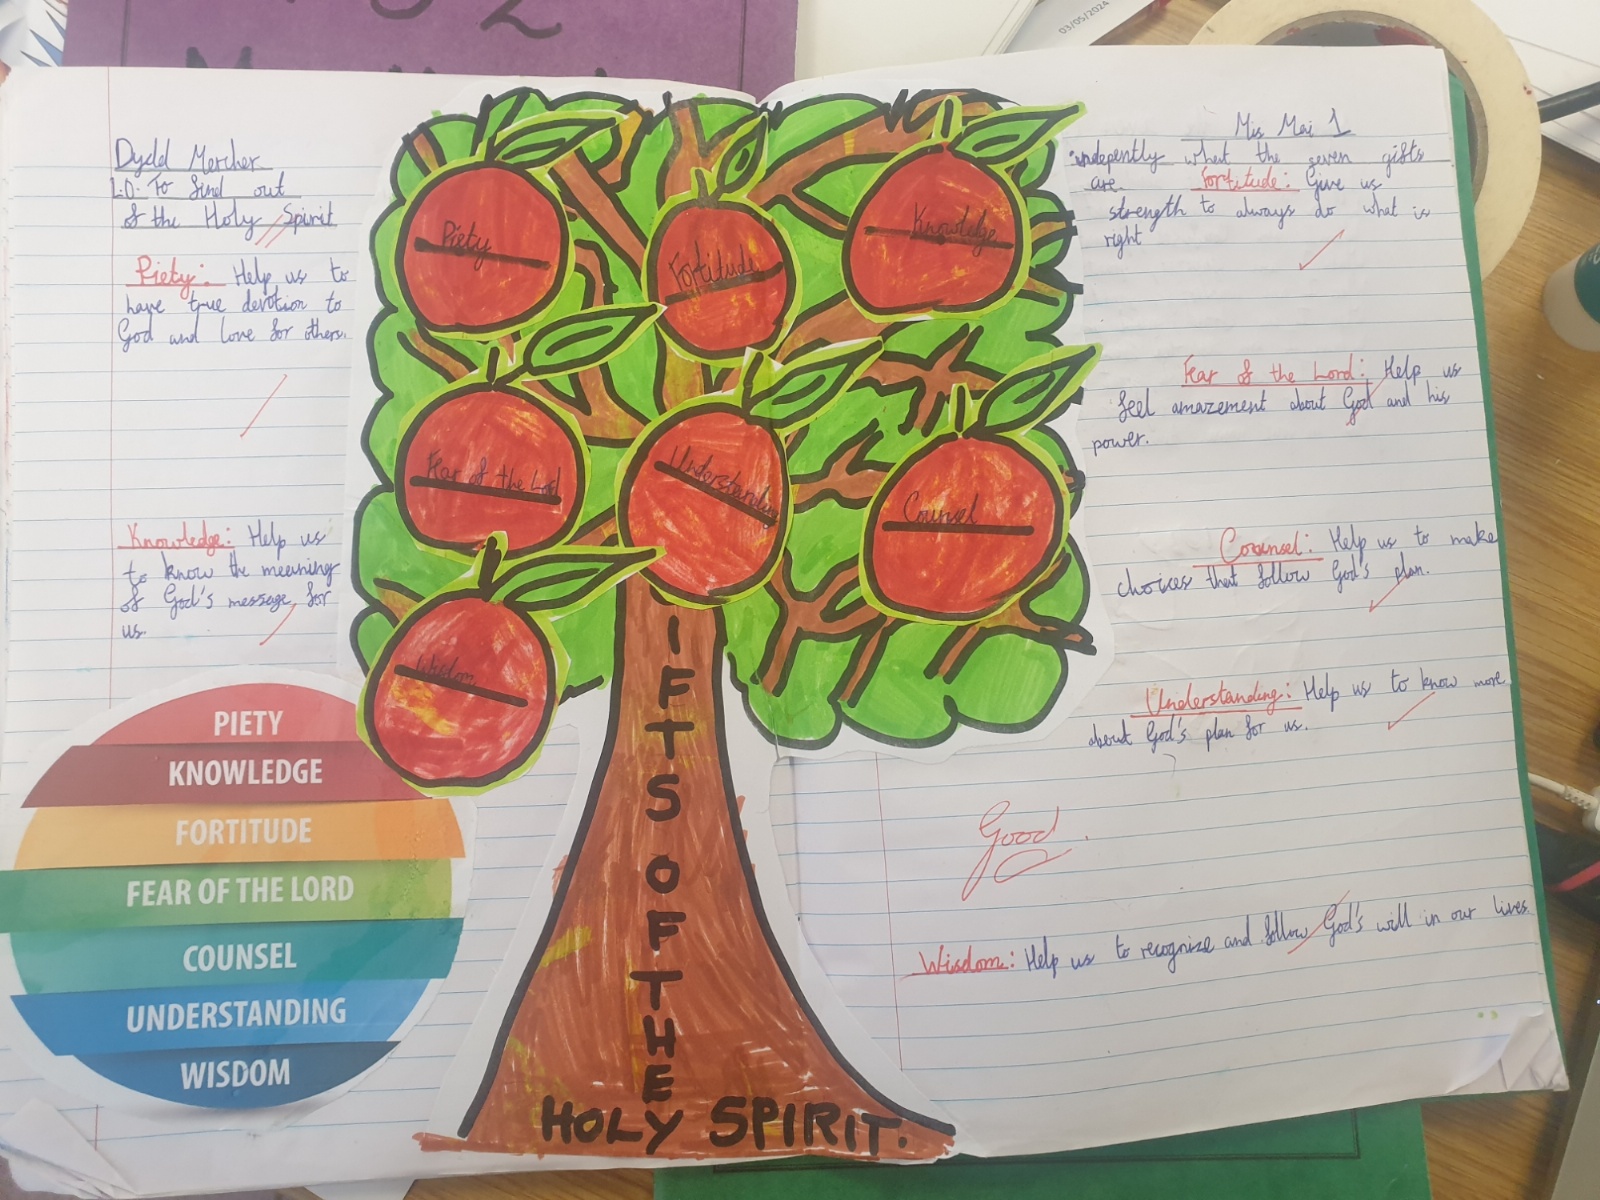 03/05/2024
Dydd Mercher
L.O: To find out
of the Holy Spirit
Piety: Help us to
have true devotion to
God and love for others.
Knowledge: Help us
to know the meaning
of God's message for
us.
PIETY
KNOWLEDGE
FORTITUDE
FEAR OF THE LORD
COUNSEL
UNDERSTANDING
WISDOM
Piety
Fortitude
Knowledge
Fear of the Lord
Understanding
Counsel
Wisdom
IFTS OF THE
HOLY SPIRIT.
Mis Mai 1
indepently what the seven gifts
are. Fortitude: Give us
strength to always do what is
right
Fear of the Lord: Help us
feel amazement about God and his
power.
Counsel: Help us to make
choices that follow God's plan.
Understanding: Help us to know more
about God's plan for us.
Good
Wisdom: Help us to recognize and follow God's will in our lives.